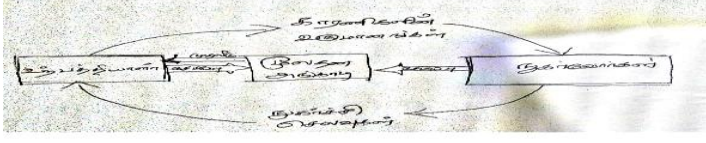 காரணிகளின்
வருமானங்கள்
உற்பத்தியாளர்
மூலதன
அங்காடி
நுகர்வோர்கள்
நுகர்ச்சி
செலவுகள்